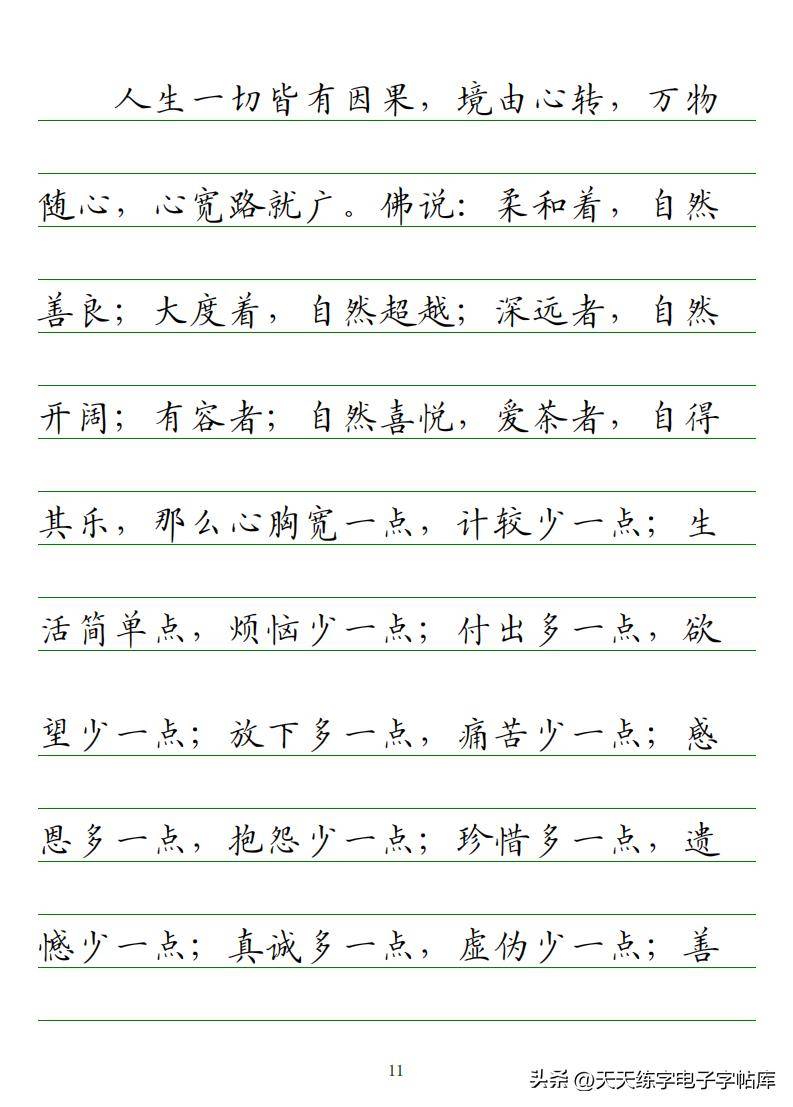 人生一切皆有因果，境由心转，万物
随心，心宽路就广。佛说：柔和着，自然
善良；大度着，自然超越；深远者，自然
开阔；有容者；自然喜悦，爱茶者，自得
其乐，那么心胸宽一点，计较少一点；生
活简单点，烦恼少一点；付出多一点，欲
望少一点；放下多一点，痛苦少一点；感
恩多一点，抱怨少一点；珍惜多一点，遗
憾少一点；真诚多一点，虚伪少一点；善
11
头条 @天天练字电子字帖库